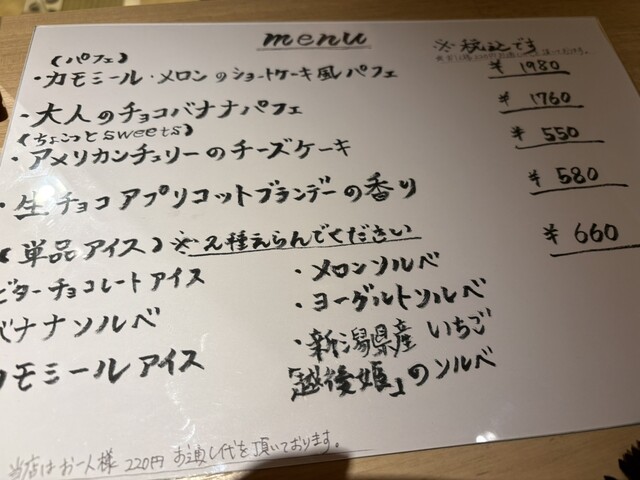 menu
※税込です
(パフェ)
・カモミール・メロンのショートケーキ風パフェ ¥1980
・大人のチョコバナナパフェ ¥1760
(ちょこっとsweets)
・アメリカンチェリーのチーズケーキ ¥550
・生チョコアプリコットブランデーの香り ¥580
(単品アイス)※2種えらんでください ¥660
ビターチョコレートアイス
バナナソルベ
カモミールアイス
・メロンソルベ
・ヨーグルトソルベ
・新潟県産いちご
「越後姫」のソルベ
当店はお一人様220円お通し代を頂いております。